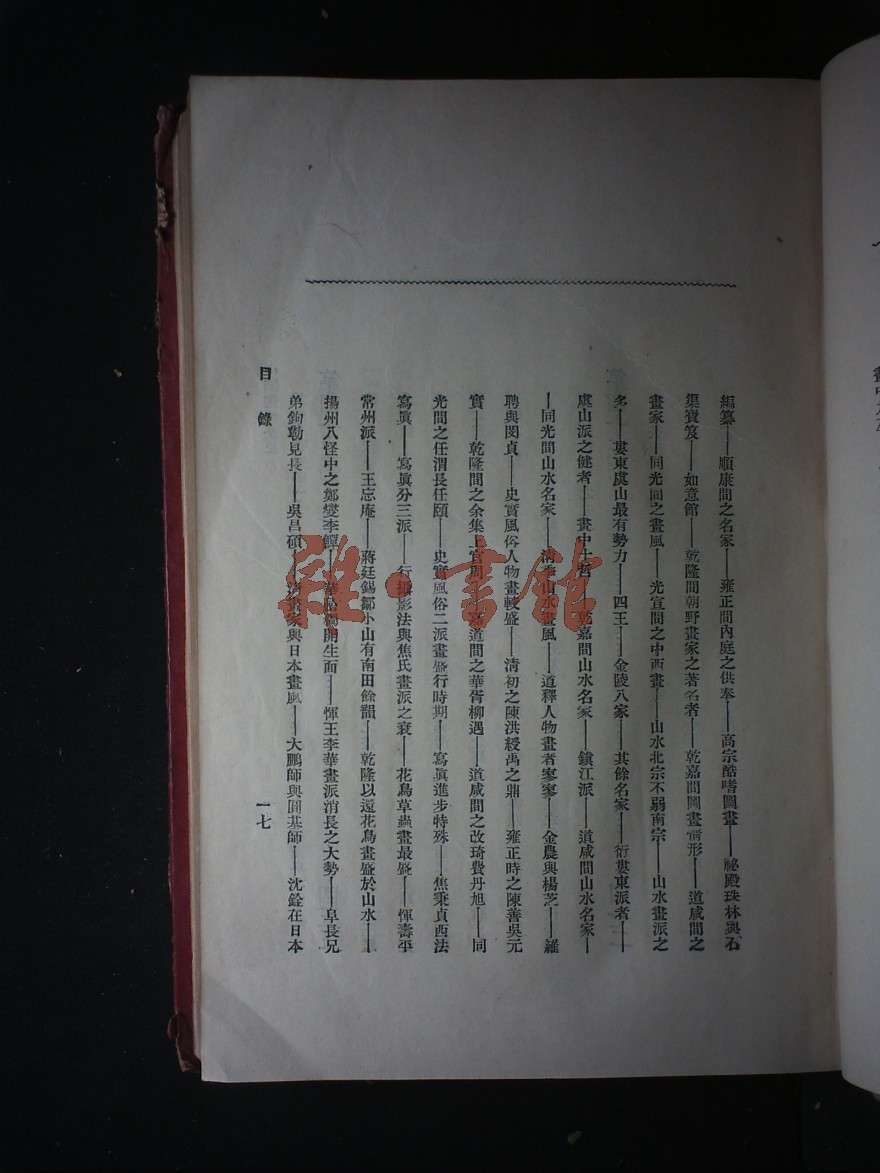 編纂——順康間之名家——雍正間內庭之供奉——高宗酷嗜圖畫——祕殿珠林與石
集寶笈——如意館——乾隆間朝野畫家之著名者——乾嘉間圖畫情形——道咸間之
畫家——同光間之畫風——光宣間之中西畫——山水北宗不弱南宗——山水畫派之
多——婁東虞山最有勢力——四王——金陵八家——其餘名家——衍婁東派者——
虞山派之健者——畫中十哲——乾嘉間山水名家——鎮江派——道咸間山水名家—
—同光間山水名家——清季山水畫風——道釋人物畫者寥寥——金農與楊芝——羅
聘與閔貞——史實風俗人物畫較盛——清初之陳洪綬禹之鼎——雍正時之陳善吳元
實——乾隆間之余集上官周——嘉道間之華胥柳遇——道咸間之改琦費丹旭——同
光間之任渭長任頤——史實風俗二派畫盛行時期——寫眞進步特殊——焦秉貞西法
寫眞——寫眞分三派——行攝影法與焦氏畫派之衰——花鳥草蟲畫最盛——惲壽平
常州派——王忘庵——蔣廷錫鄒小山有南田餘韻——乾隆以還花鳥畫盛於山水——
揚州八怪中之鄭燮李鱓——華嵒獨開生面——惲王李華畫派消長之大勢——阜長兄
弟鉤勒見長——吳昌碩——清畫家與日本畫風——大鵬師與圓基師——沈銓在日本
目錄
一七
雜·書館